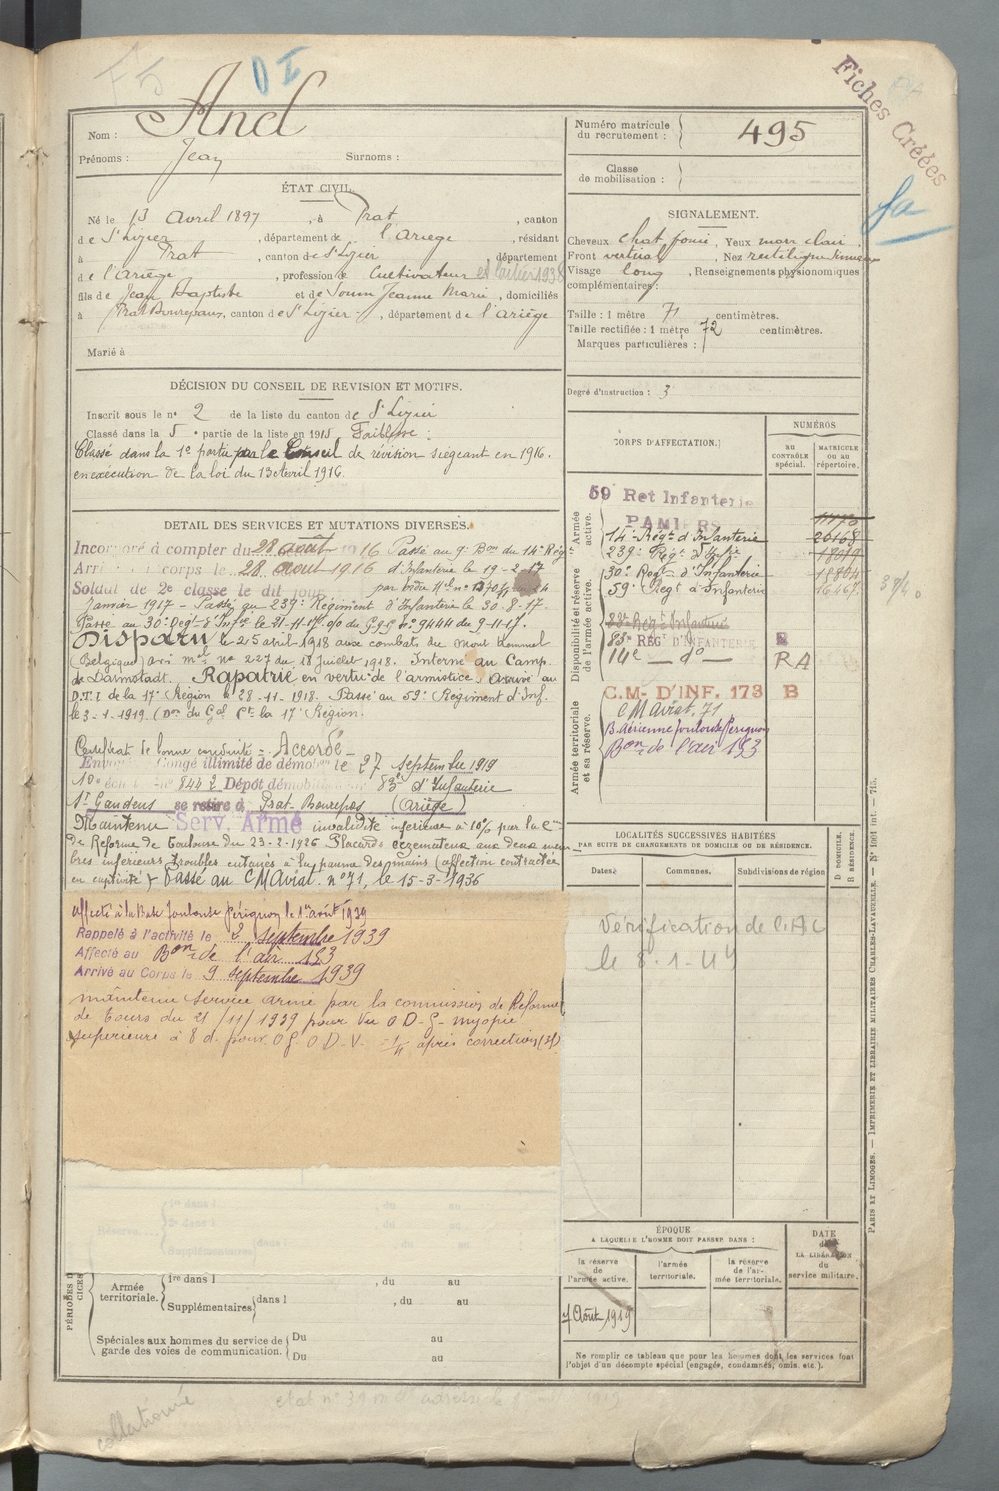 F5
DI
Fiches Créées
fa
Nom : Ancl
Prénoms : Jean Surnoms :
ÉTAT CIVIL.
Né le 13 Avril 1897, à Prat, canton
de St Lizier, département de l'Ariège, résidant
à Prat, canton de St Lizier, département
de l'Ariège, profession de Cultivateur et laitier 1938
fils de Jean Baptiste et de Soum Jeanne Marie, domiciliés
à Prat Bonrepaux, canton de St Lizier, département de l'Ariège
Marié à
Numéro matricule du recrutement : 495
Classe de mobilisation :
SIGNALEMENT.
Cheveux chat. foncé, Yeux marr. clair,
Front vertical, Nez rectiligne
Visage long, Renseignements physionomiques
complémentaires :
Taille : 1 mètre 71 centimètres.
Taille rectifiée : 1 mètre 72 centimètres.
Marques particulières :
Degré d'instruction : 3
DÉCISION DU CONSEIL DE REVISION ET MOTIFS.
Inscrit sous le n° 2 de la liste du canton de St Lizier
Classé dans la 5e partie de la liste en 1915 Faiblesse :
Classé dans la 1e partie par le Conseil de révision siégeant en 1916.
en exécution de la loi du 13 Avril 1916.
DETAIL DES SERVICES ET MUTATIONS DIVERSES.
Incorporé à compter du 28 août 1916 Passé au 9e Bon du 14e Rég
Arrivé au corps le 28 août 1916 d'Infanterie le 19-2-17
Soldat de 2e classe le dit jour par ordre Mel n° du 24
Janvier 1917 - Passé au 239e Régiment d'Infanterie le 30-8-17.
Passé au 30e Regt d'Infie le 21-11-17 o/o du G.Q.G. n° 9444 du 9-11-17.
Disparu le 25 avril 1918 aux combats du Mont Kemmel
(Belgique) avis mel n° 227 du 18 Juillet 1918. Interné au Camp
de Darmstadt. Rapatrié en vertu de l'armistice. Arrivé au
D.T.I de la 17e Région le 28-11-1918. Passé au 59e Régiment d'Inf.
le 3-1-1919. (Don du Gal Ct la 17e Région.
Certificat de bonne conduite : Accordé
Envoyé en Congé illimité de démobon le 27 septembre 1919
10e échelon n° 844 2 Dépôt démobilisateur 83e d'Infanterie
St Gaudens se retire à Prat-Bonrepos (Ariège)
Maintenu Serv. Armé invalidité inférieure à 10% par la Con
de Réforme de Toulouse du 23-2-1926 Placards eczémateux aux deux mem
bres inférieurs troubles cutanés à la paume des mains (affection contractée
en captivité) Passé au C M Aviat. n° 71, le 15-3-1936
affecté à la Base Toulouse Pérignon le 1er août 1939
Rappelé à l'activité le 2 septembre 1939
Affecté au Bon de l'air 153
Arrivé au Corps le 9 septembre 1939
maintenu service armé par la commission de Réforme
de Tours du 21/11/1939 pour Vu O D-G- myopie
supérieure à 8 d. pour OG. O D-V. après correction
CORPS D'AFFECTATION.
NUMÉROS
AU CONTRÔLE spécial.
MATRICULE OU AU répertoire.
Armée active.
Disponibilité et réserve de l'armée active.
Armée territoriale et sa réserve.
59 Ret Infanterie
PAMIERS
14e Régt d'Infanterie 20168
239e Régt d'Infie 18019
30e Regt d'Infanterie 18804
59e Regt d'Infanterie 16467
83e Reg d'Infanterie
83e REGt D'INFANTERIE R
14e - do - RA
C.M- D'INF. 173 B
C M Aviat. 71
B. Aérienne Toulouse Pérignon
Bon de l'air 153
LOCALITÉS SUCCESSIVES HABITÉES
PAR SUITE DE CHANGEMENTS DE DOMICILE OU DE RÉSIDENCE.
Dates. Communes. Subdivisions de région
D DOMICILE. R RÉSIDENCE.
Vérification de l'AC
le 8-1-44
Réserve....
1re dans l , du au
2e dans l , du au
Supplémentaires dans l , du au
PÉRIODES D
Armée territoriale.
1re dans l , du au
Supplémentaires dans l , du au
Spéciales aux hommes du service de garde des voies de communication.
Du au
Du au
ÉPOQUE
A LAQUELLE L'HOMME DOIT PASSER DANS :
la réserve de l'armée active.
l'armée territoriale.
la réserve de l'armée territoriale.
DATE de LA LIBÉRATION du service militaire.
Août 1919
Ne remplir ce tableau que pour les hommes dont les services font
l'objet d'un décompte spécial (engagés, condamnés, omis, etc.).
PARIS ET LIMOGES. — IMPRIMERIE ET LIBRAIRIE MILITAIRES CHARLES-LAVAUZELLE. — N° 1061 int. — 715.
collationné